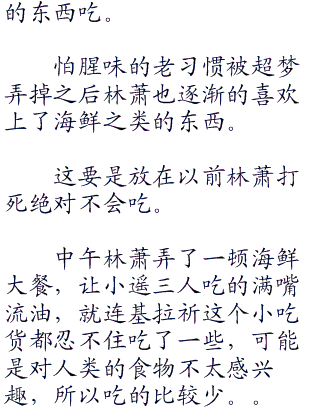 的东西吃。
怕腥味的老习惯被超梦
弄掉之后林萧也逐渐的喜欢
上了海鲜之类的东西。
这要是放在以前林萧打
死绝对不会吃。
中午林萧弄了一顿海鲜
大餐，让小遥三人吃的满嘴
流油，就连基拉祈这个小吃
货都忍不住吃了一些，可能
是对人类的食物不太感兴
趣，所以吃的比较少。。